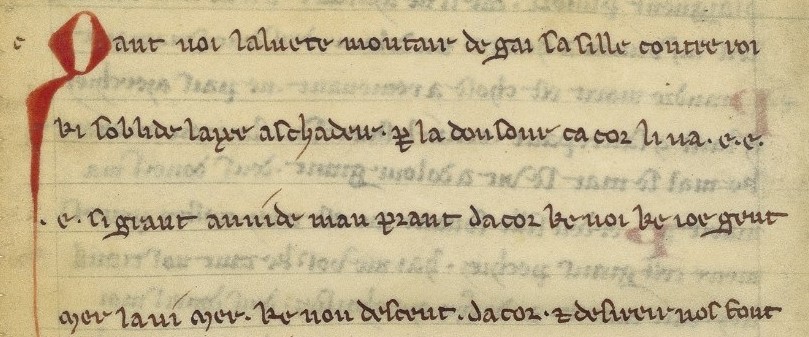 Quant voi laluete moutair de gai sa sille contre roi
ki soblide laxe aschadeir. ꝑ la dousour ca cor li va. e. e.
. e. si grant anvide mau prant dacor ke voi ke ioe gent
mer lavi mer. ke non descent. dacor. ⁊ desireir nos font